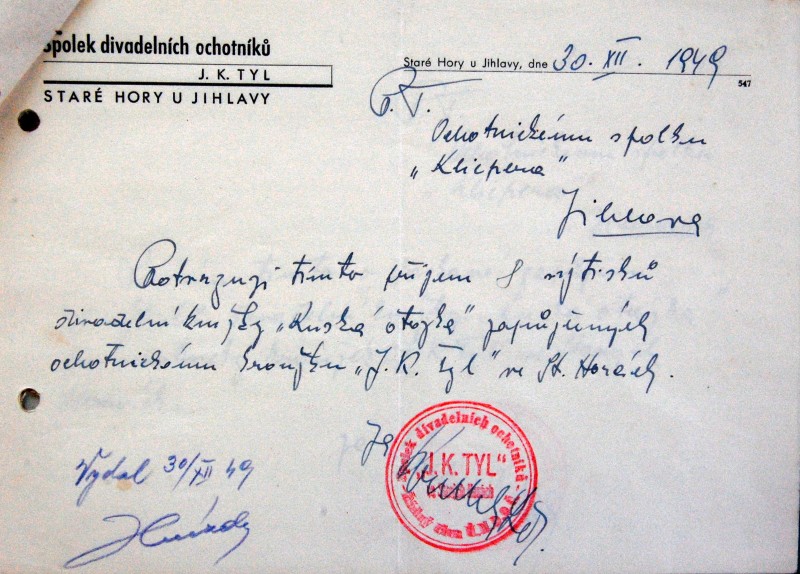 Spolek divadelních ochotníků
J. K. TYL
STARÉ HORY U JIHLAVY
Staré Hory u Jihlavy, dne 30. XII. 1949
547
P. T.
Ochotnickému spolku
„Klicpera"
Jihlava
Potvrzuji tímto příjem 8 výtisků
divadelní knížky „Ruská otázka" zapůjčených
ochotnickému kroužku „J. K. Tyl" ve St. Horách.
Za
Spolek divadelních ochotníků
„J. K. TYL"
Vydal 30/XII 49